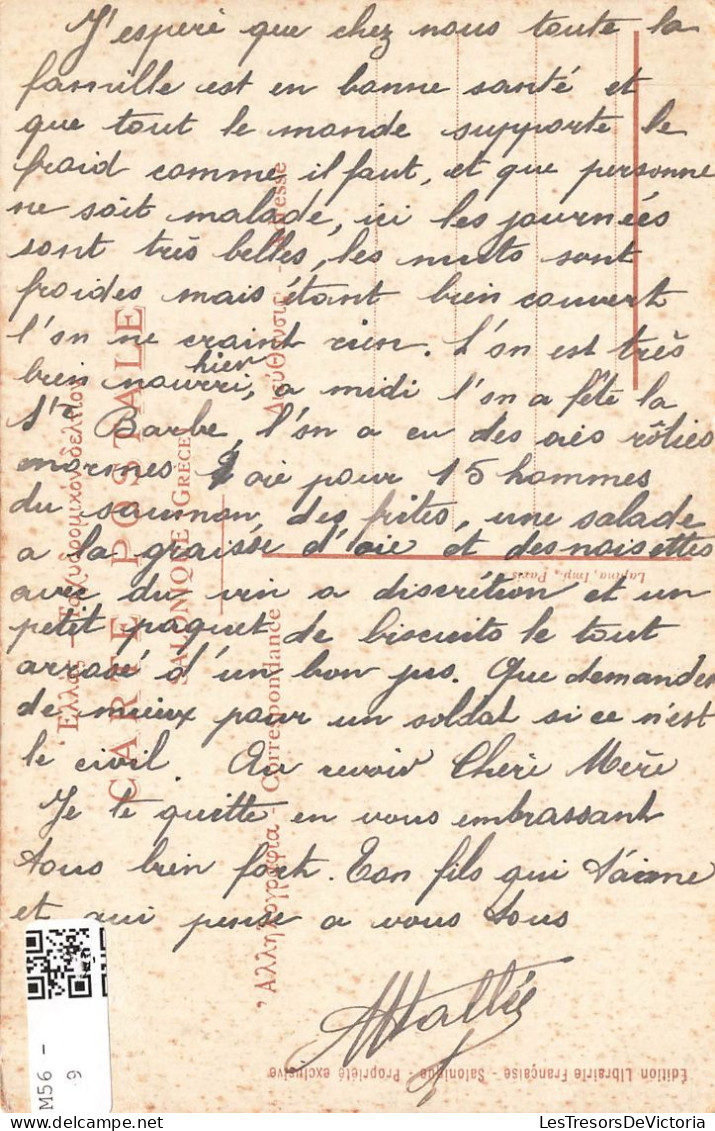 J'esperé que chez nous toute la
famille est en bonne santé et
que tout le monde supporte le
froid comme il faut, et que personne
ne soit malade, ici les journées
sont très belles, les nuits sont
froides mais étant bien couvert
l'on ne craint rien. L'on est très
bien nourri, hier a midi l'on a fêté la
Ste Barbe, l'on a eu des oies rôties
enormes 1 oie pour 15 hommes
du saumon, des frites, une salade
a la graisse d'oie et des noisettes
avec du vin a discrétion et un
petit paquet de biscuits le tout
arrosé d'un bon jus. Que demander
de mieux pour un soldat si ce n'est
le civil. Au revoir Chère Mère
Je te quitte en vous embrassant
tous bien fort. Ton fils qui t'aime
et qui pense a vous tous
Ἑλλάς - Ταχυδρομικὸν δελτίον
CARTE POSTALE
SALONIQUE (GRÈCE)
Ἀλληλογραφία - Correspondance
Διεύθυνσις - Adresse
Lapina, Imp., Paris
Édition Librairie Française - Salonique - Propriété exclusive
M56 -
9
LesTresorsDeVictoria